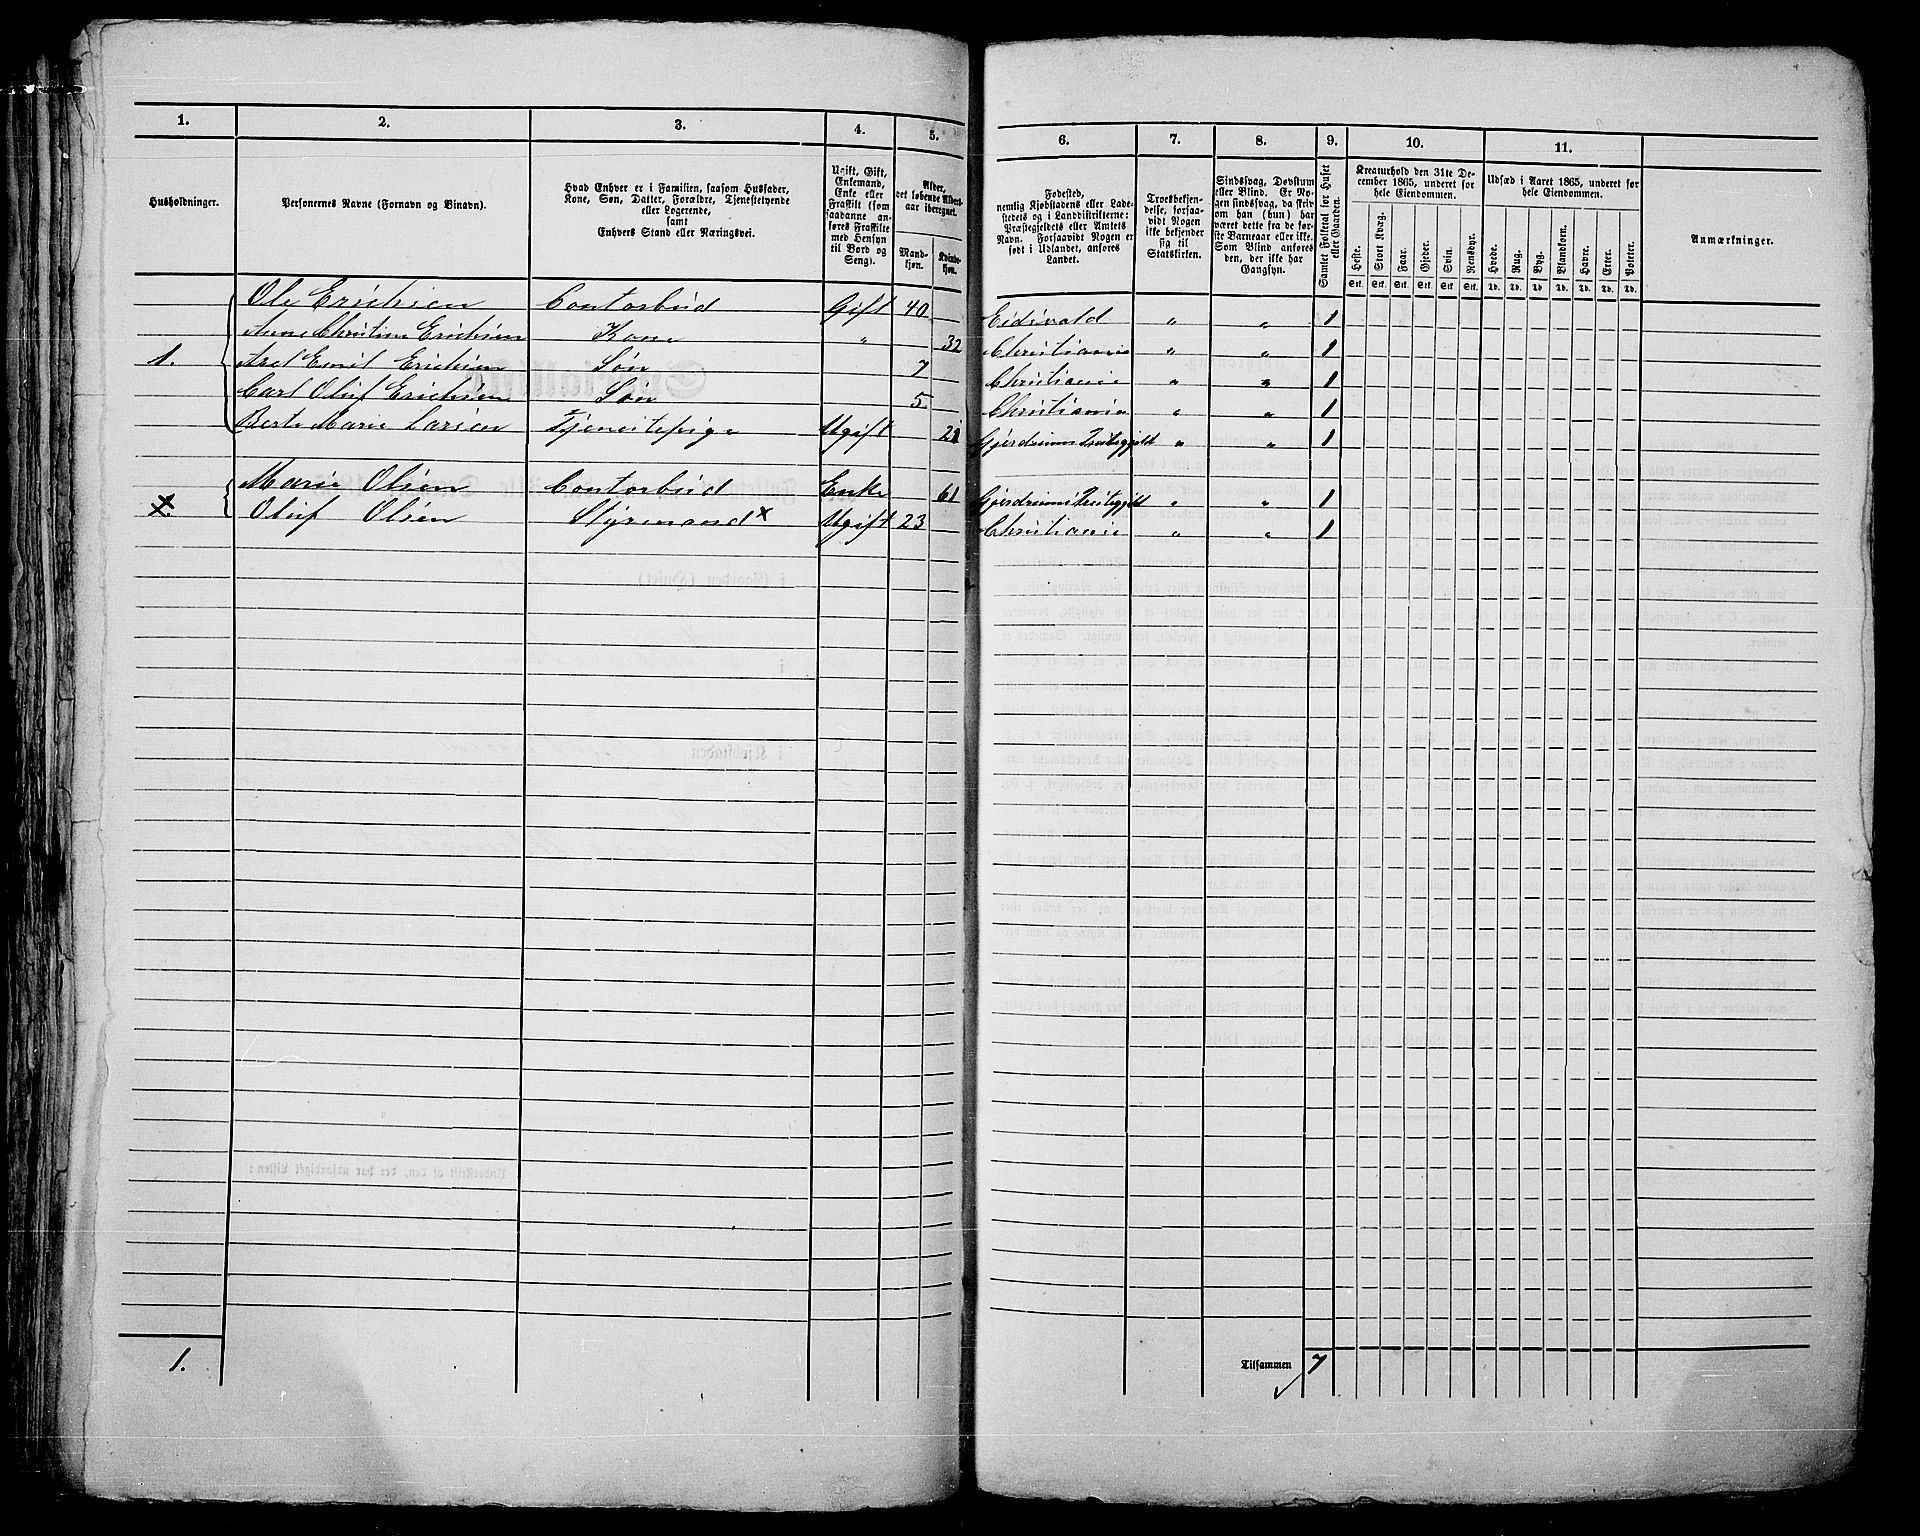 1. 2. 3. 4. 5. 6. 7. 8. 9. 10. 11.
Husholdninger.
Personernes Navne (Fornavn og Binavn).
Hvad Enhver er i Familien, saasom Husfader,
Kone, Søn, Datter, Forældre, Tjenestetyende
eller Logerende,
samt
Enhvers Stand eller Næringsvei.
Ugift, Gift,
Enkemand,
Enke eller
Fraskilt (som
saadanne an-
føres Fraskilte
med Hensyn
til Bord og
Seng).
Alder,
det løbende Alders-
aar iberegnet.
Mand-
kjøn.
Kvinde-
kjøn.
Fødested,
nemlig Kjøbstadens eller Lade-
stedets og i Landdistrikterne:
Præstegjeldets eller Amtets
Navn. Forsaavidt Nogen er
født i Udlandet, anføres
Landet.
Troesbekjen-
delse, forsaa-
vidt Nogen
ikke bekjender
sig til
Statskirken.
Sindssvag, Døvstum
eller Blind. Er No-
gen sindssvag, da skriv
om han (hun) har
været dette fra de før-
ste Barneaar eller ikke.
Som Blind anføres
den, der ikke har
Gangsyn.
Samlet Folketal for Huset
eller Gaarden.
Kreaturhold den 31te De-
cember 1865, underet for
hele Eiendommen.
Heste. Stort Kvæg. Faar. Gjeder. Svin. Rensdyr.
Stk. Stk. Stk. Stk. Stk. Stk.
Udsæd i Aaret 1865, underet for
hele Eiendommen.
Hvede. Rug. Byg. Blandkorn. Havre. Erter. Poteter.
Td. Td. Td. Td. Td. Td. Td.
Anmærkninger.
Ole Erichsen Contorbud Gift 40 Eidsvold " " 1
Anne Christine Erichsen Kone " 32 Christiania " " 1
1. Axel Emil Erichsen Søn 7 Christiania " " 1
Carl Oluf Erichsen Søn 5 Christiania " " 1
Berte Marie Larsen Tjenestepige Ugift 21 Gjerdrums Prestegjeld " " 1
Marie Olsen Contorbud Enke 61 Gjerdrums Prestegjeld " " 1
x. Oluf Olsen Styrmand x Ugift 23 Christiania " " 1
1. Tilsammen 7